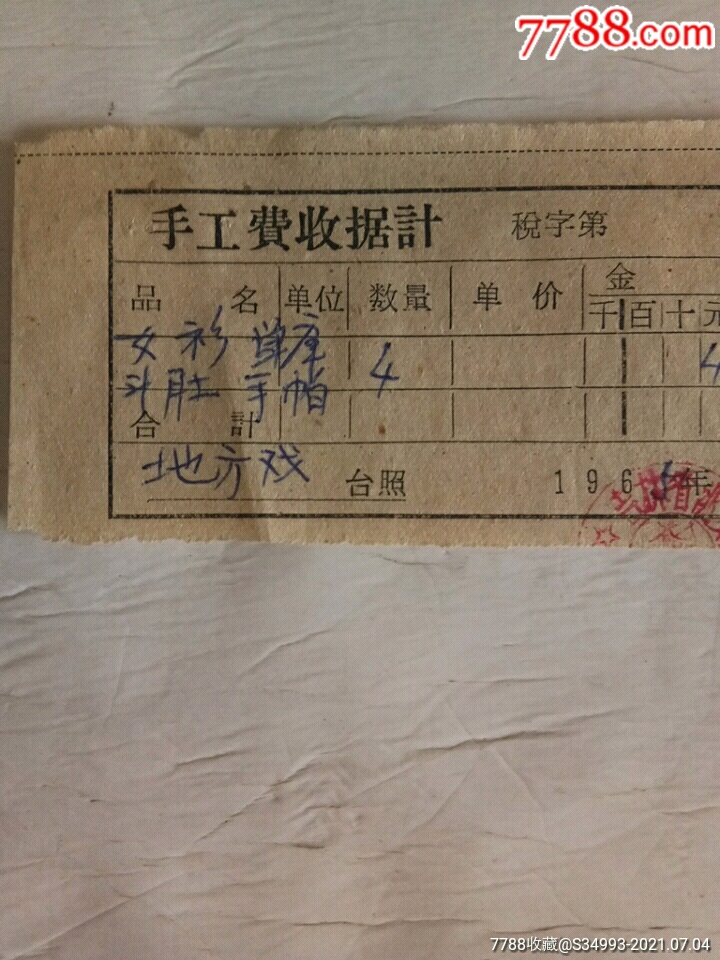 7788.com
手工費收据計 税字第
品 名 单位 数量 单 价 金
千百十元
女衫 4 4
斗肚 手帕
合 計
地方戏 台照 196 年
7788收藏@S34993-2021.07.04